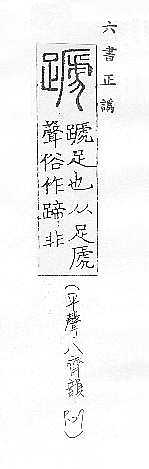 六書正譌
蹏
蹏足也从足虒
聲俗作蹄非
(平聲、八齊韻